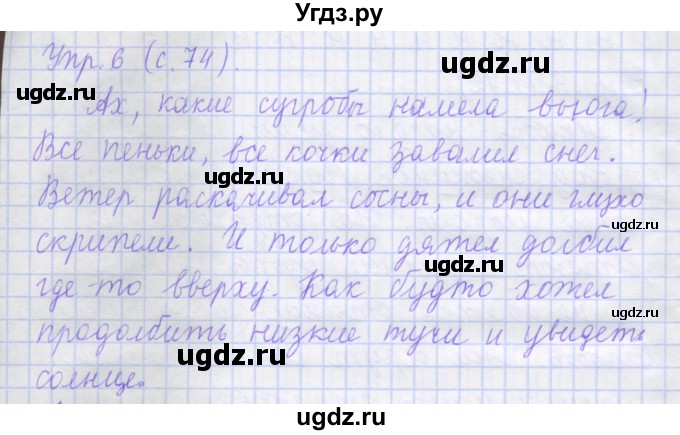 Угдз.ру
Упр. 6 (с. 74).
ugdz.ru
ugdz.ru
Ах, какие сугробы намела вьюга!
Все пеньки, все кочки завалил снег.
ugdz.ru
Ветер раскачивал сосны, и они глухо
скрипели. И только дятел долбил
ugdz.ru
где-то вверху. Как будто хотел
ugdz.ru
продолбить низкие тучи и увидеть
ugdz.ru
солнце.
ugdz.ru